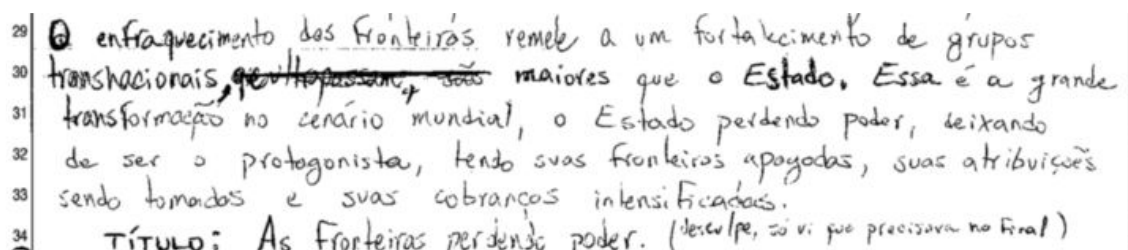 29 O enfraquecimento das fronteiras remete a um fortalecimento de grupos
30 transnacionais, que ultrapassam, são maiores que o Estado. Essa é a grande
31 transformação no cenário mundial, o Estado perdendo poder, deixando
32 de ser o protagonista, tendo suas fronteiras apagadas, suas atribuições
33 sendo tomadas e suas cobranças intensificadas.
34 TÍTULO: As fronteiras perdendo poder. (desculpe, só vi que precisava no final)